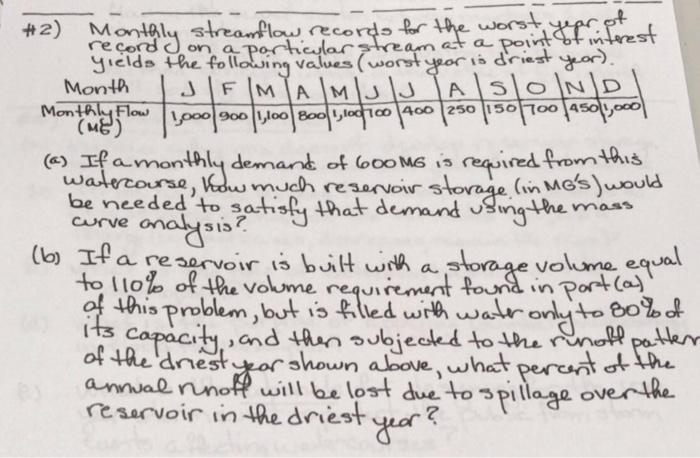 #2) Monthly streamflow records for the worst year of
record on a particular stream at a point of interest
yields the following values (worst year is driest year).
Month | J | F | M | A | M | J | J | A | S | O | N | D |
Monthly Flow (MG) | 1,000 | 900 | 1,100 | 800 | 1,100 | 700 | 400 | 250 | 150 | 700 | 450 | 1,000 |
(a) If a monthly demand of 600 MG is required from this
watercourse, how much reservoir storage (in MG's) would
be needed to satisfy that demand using the mass
curve analysis?
(b) If a reservoir is built with a storage volume equal
to 110% of the volume requirement found in part (a)
of this problem, but is filled with water only to 80% of
its capacity, and then subjected to the runoff pattern
of the driest year shown above, what percent of the
annual runoff will be lost due to spillage over the
reservoir in the driest year?